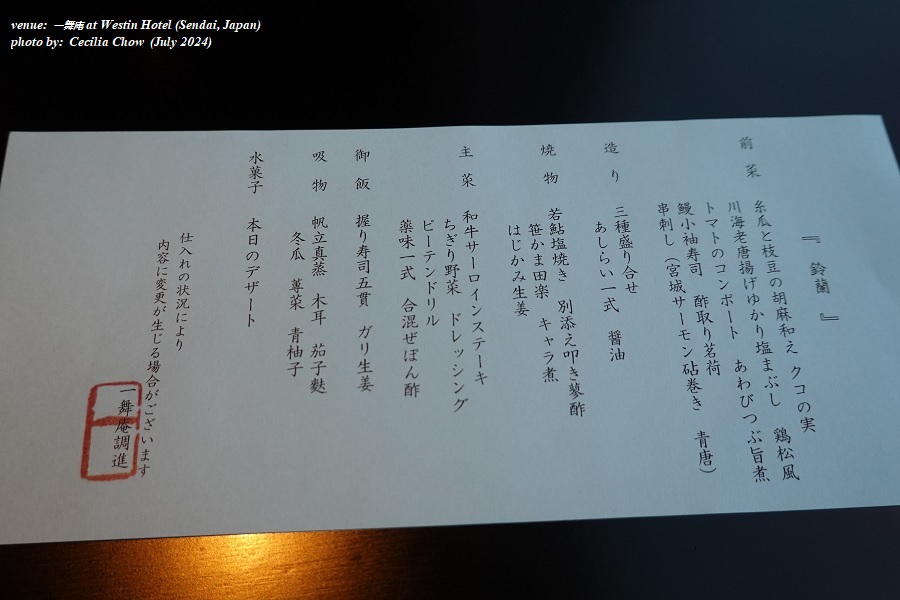 venue: 一舞庵 at Westin Hotel (Sendai, Japan)
photo by: Cecilia Chow (July 2024)
『鈴蘭』
前菜 糸瓜と枝豆の胡麻和え クコの実
川海老唐揚げゆかり塩まぶし 鶏松風
トマトのコンポート あわびつぶ旨煮
鰻小袖寿司 酢取り茗荷
串刺し（宮城サーモン砧巻き 青唐）
造り 三種盛り合せ
あしらい一式 醤油
焼物 若鮎塩焼き 別添え叩き蓼酢
笹かま田楽 キャラ煮
はじかみ生姜
主菜 和牛サーロインステーキ
ちぎり野菜 ドレッシング
ビーテンドリル
薬味一式 合混ぜぽん酢
御飯 握り寿司五貫 ガリ生姜
吸物 帆立真蒸 木耳 茄子麩
冬瓜 蓴菜 青柚子
水菓子 本日のデザート
仕入れの状況により
内容に変更が生じる場合がございます
一舞庵調進